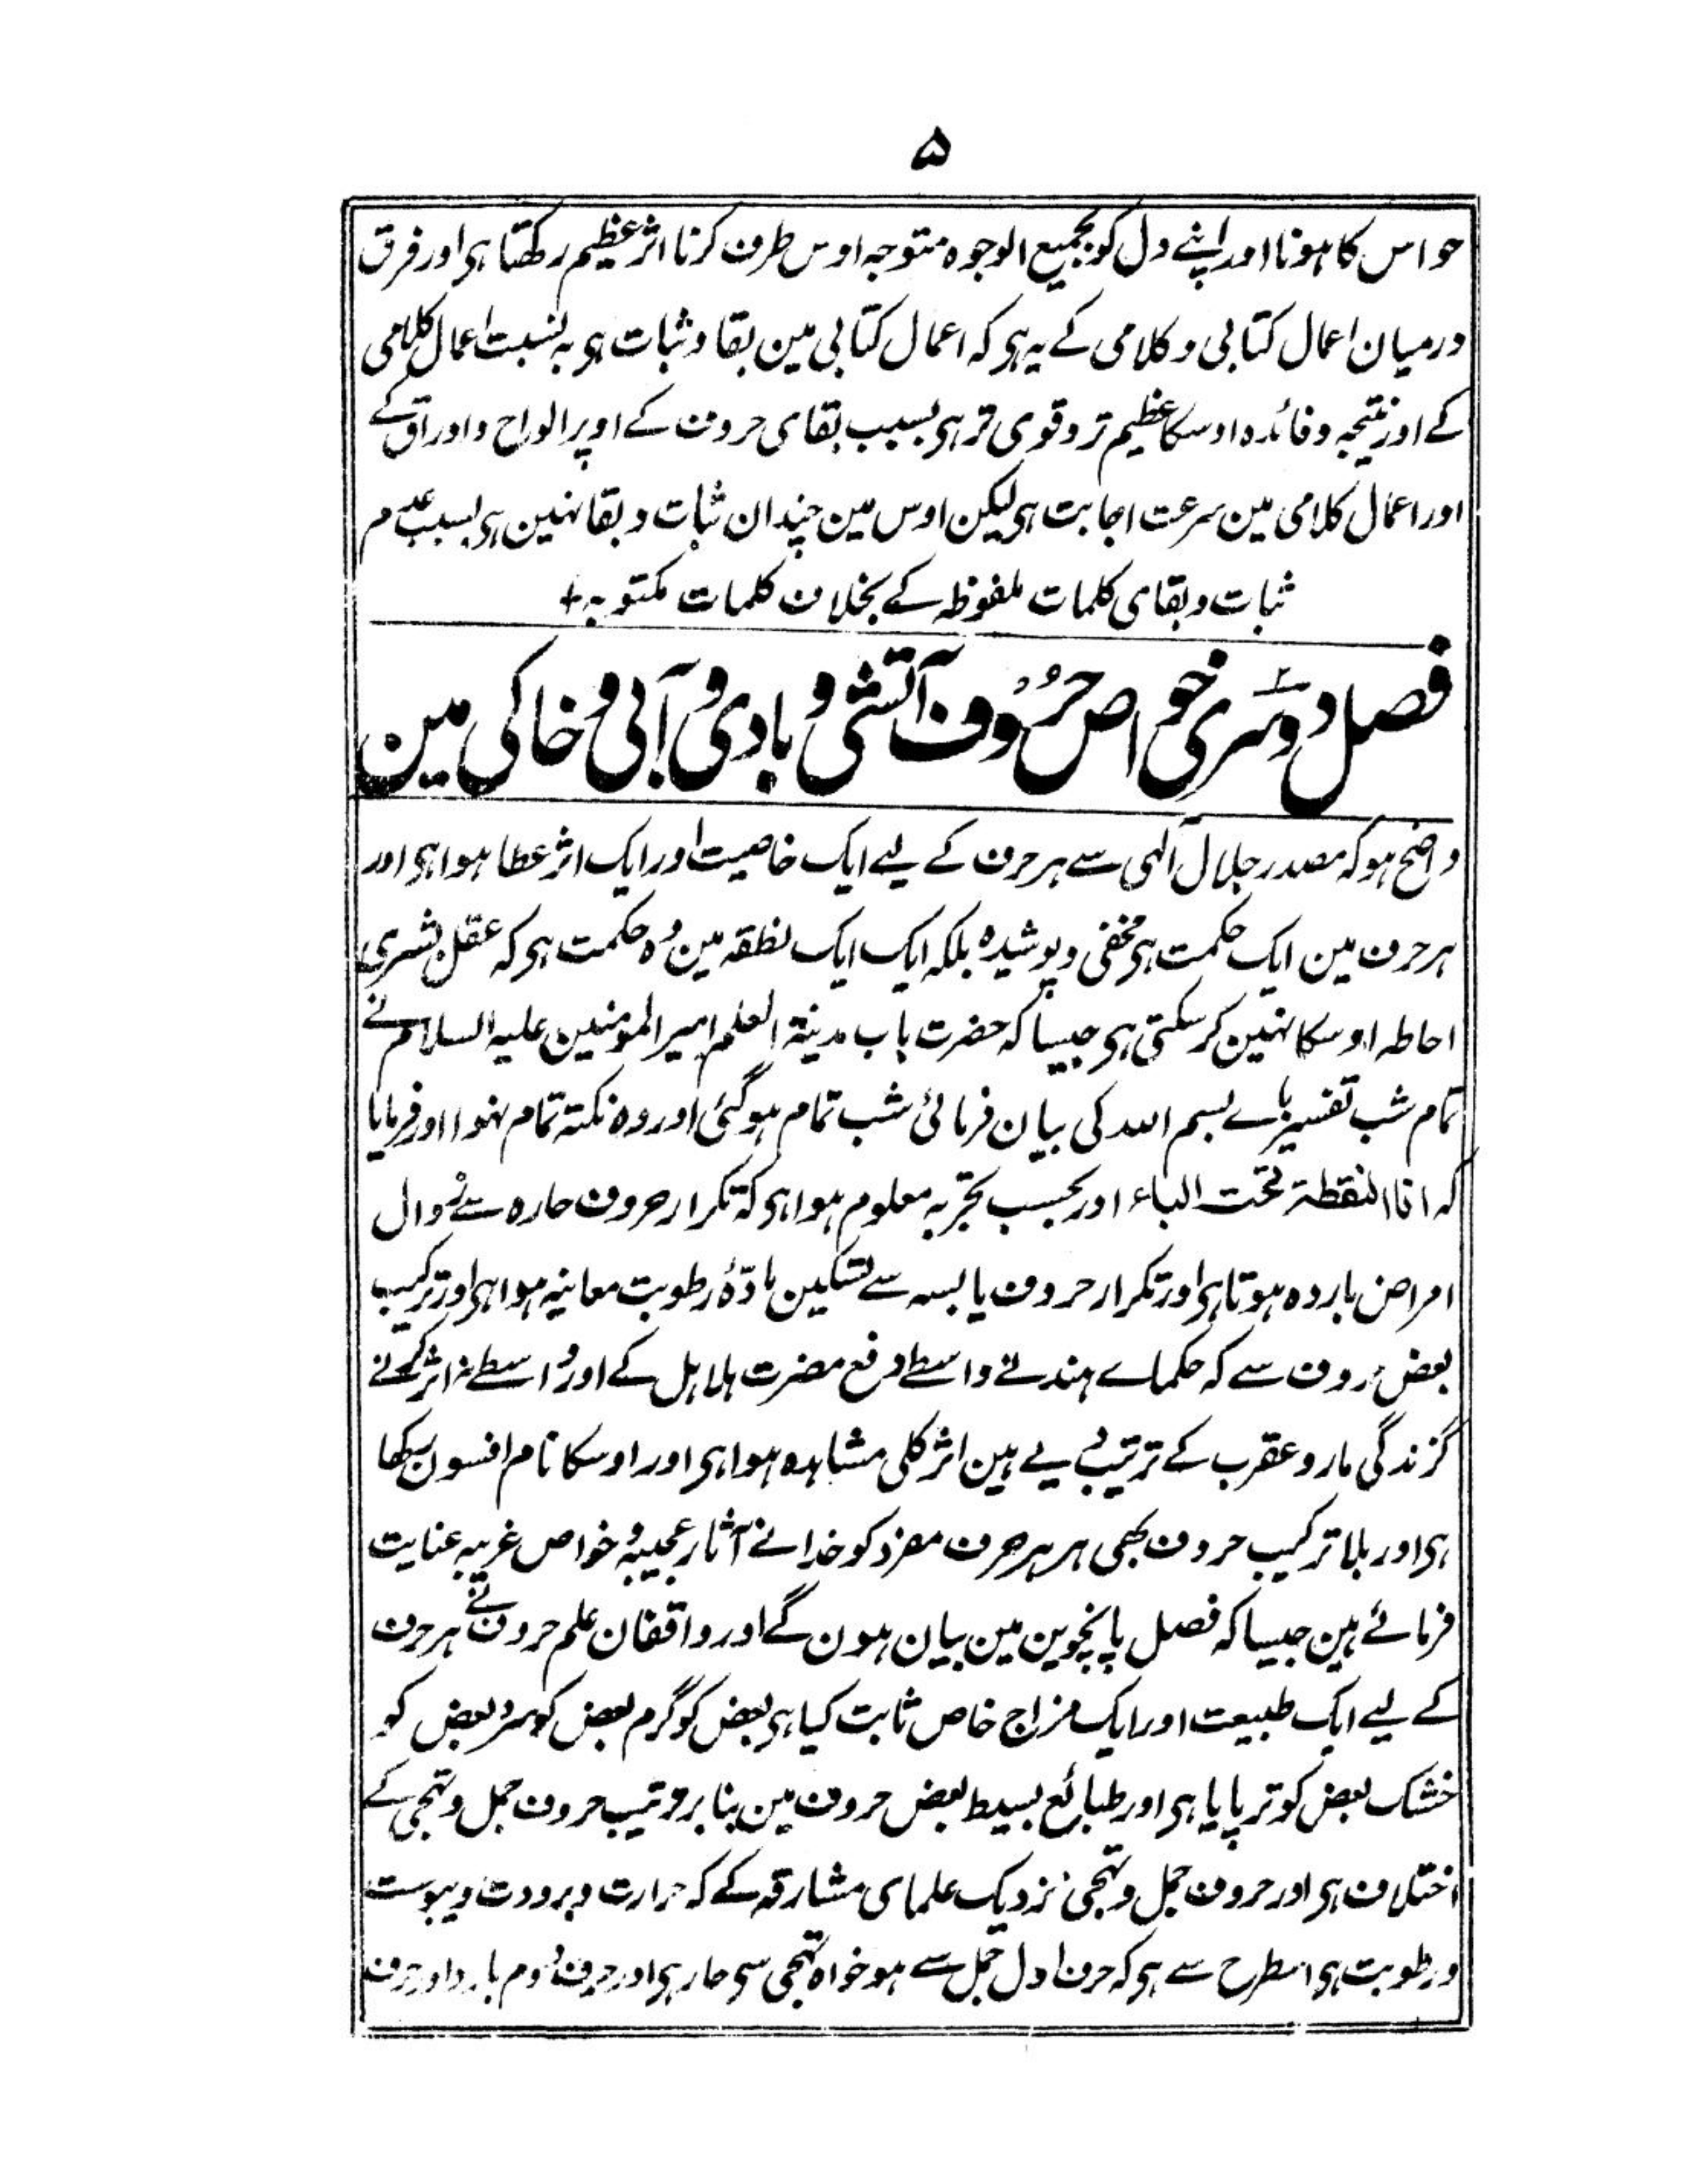 ۵
حواس کا ہونا اور اپنے دل کو بجمیع الوجوہ متوجہ اوس طرف کرنا اثر عظیم رکھتا ہی اور فرق
درمیان اعمال کتابی و کلامی کے یہ ہی کہ اعمال کتابی مین بقا و ثبات ہی بہ نسبت اعمال کلامی
کے اور نتیجہ و فائدہ اوسکا عظیم تر و قوی تر ہی بسبب بقای حروف کے اوپر الواح و اوراق کے
اور اعمال کلامی مین سرعت اجابت ہی لیکن اوس مین چندان ثبات و بقا نہین ہی بسبب عدم
ثبات و بقای کلمات ملفوظہ کے بخلاف کلمات مکتوبہ +
فصل دوسری خواص حروف آتشی و بادی و آبی و خاکی مین
واضح ہو کہ مصدر جلال آلہی سے ہر حرف کے لیے ایک خاصیت اور ایک اثر عطا ہوا ہی اور
ہر حرف مین ایک حکمت ہی مخفی و پوشیدہ بلکہ ایک ایک نطقہ مین وہ حکمت ہی کہ عقل بشری
احاطہ اوسکا نہین کر سکتی ہی جیسا کہ حضرت باب مدینۃ العلم امیر المومنین علیہ السلام نے
تمام شب تفسیر باے بسم اللہ کی بیان فرمائی شب تمام ہو گئی اور وہ نکتہ تمام نہوا اور فرمایا
کہ انا النقطۃ تحت الباء اور بحسب تجربہ معلوم ہوا ہی کہ تکرار حروف حارہ سے زوال
امراض باردہ ہوتا ہی اور تکرار حروف یابسہ سے تسکین مادّۂ رطوبت معاینہ ہوا ہی اور ترکیب
بعض حروف سے کہ حکماے ہند نے واسطے دفع مضرت ہلاہل کے اور واسطے نہ اثر کرنے
گزندگی مار و عقرب کے ترتیب دیے ہین اثر کلی مشاہدہ ہوا ہی اور اوسکا نام افسون رکھا
ہی اور بلا ترکیب حروف بھی ہر ہر حرف مفرد کو خدا نے آثار عجیبہ و خواص غریبہ عنایت
فرمائے ہین جیسا کہ فصل پانچوین مین بیان ہون گے اور واقفان علم حروف نے ہر حرف
کے لیے ایک طبیعت اور ایک مزاج خاص ثابت کیا ہی بعض کو گرم بعض کو سرد بعض کو
خشک بعض کو تر پایا ہی اور طبائع بسیط بعض حروف مین بنا بر ترتیب حروف جمل و تہجی کے
اختلاف ہی اور حروف جمل و تہجی نزدیک علمای مشارقہ کے کہ حرارت و برودت و یبوست
و رطوبت ہی اسطرح سے ہی کہ حرف اول جمل سے ہو خواہ تہجی سی حار ہی اور حرف دوم بارد اور حرف